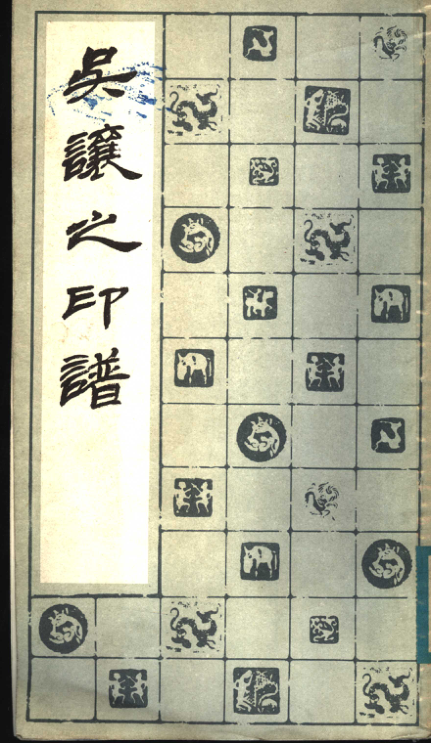 吳讓之印譜